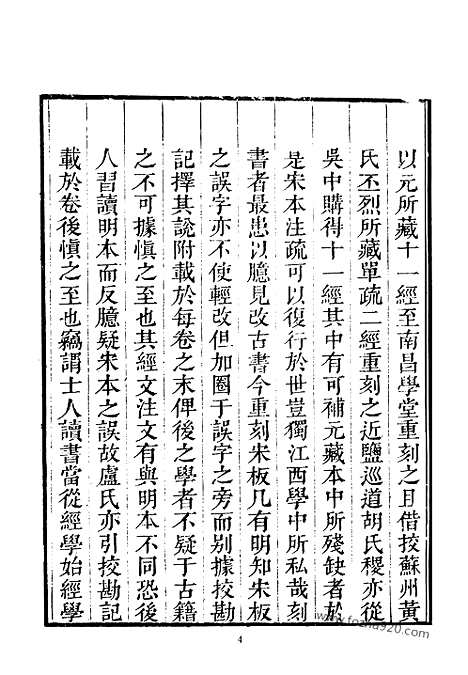 以元所藏十一經至南昌學堂重刻之且借挍蘇州黃
氏丕烈所藏單疏二經重刻之近鹽巡道胡氏稷亦從
吳中購得十一經其中有可補元藏本中所殘缺者於
是宋本注疏可以復行於世豈獨江西學中所私哉刻
書者最患以臆見改古書今重刻宋板凡有明知宋板
之誤字亦不使輕改但加圈于誤字之旁而别據挍勘
記擇其說附載於每卷之末俾後之學者不疑于古籍
之不可據慎之至也其經文注文有與明本不同恐後
人習讀明本而反臆疑宋本之誤故盧氏亦引挍勘記
載於卷後慎之至也竊謂士人讀書當從經學始經學
4
www.fozhu920.com